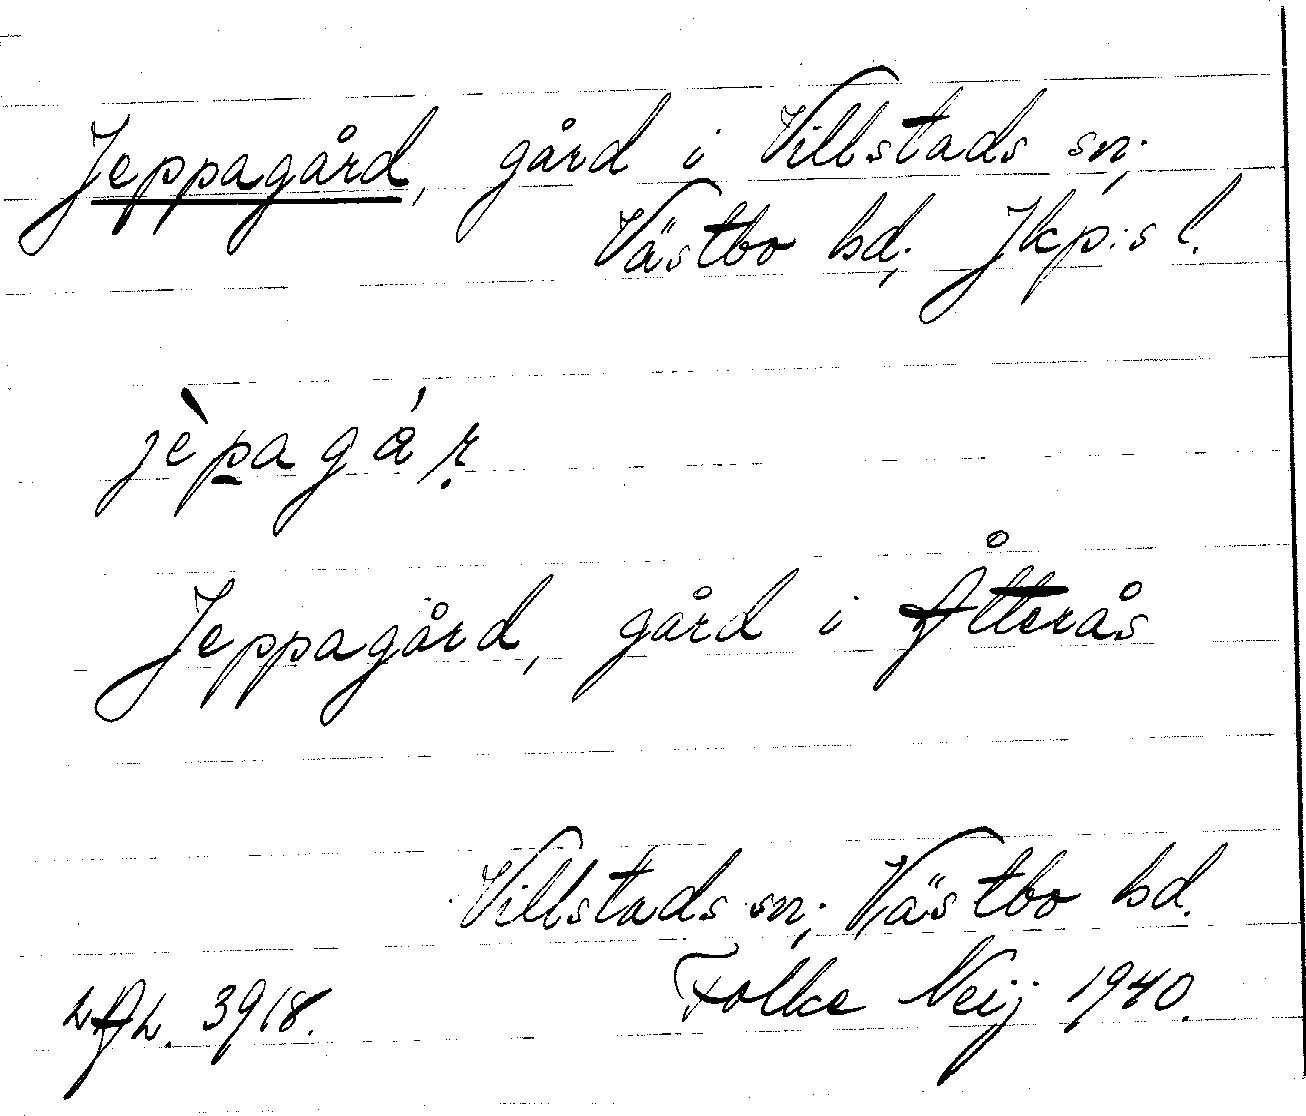 Jeppagård, gård i Villstads sn;
Västbo hd; Jkp:s l.
jèpagár
Jeppagård, gård i Åtterås
Villstads sn; Västbo hd.
LAL. 3918. Folke Neij 1940.